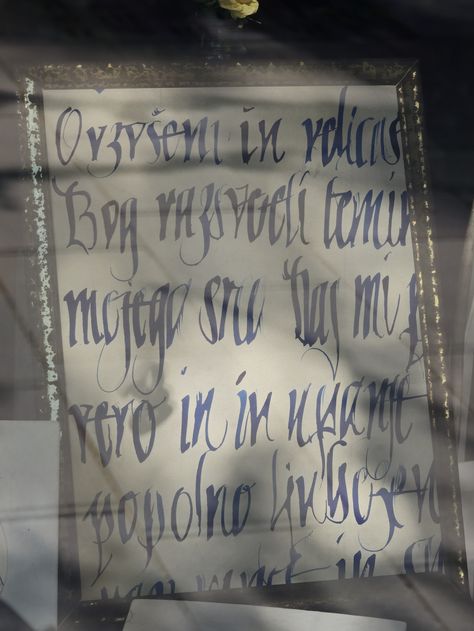 O vzvšeni in veličas
Bog razsvetli temin
mojega srca Daj mi p
vero in in upanje
popolno ljubezen
in